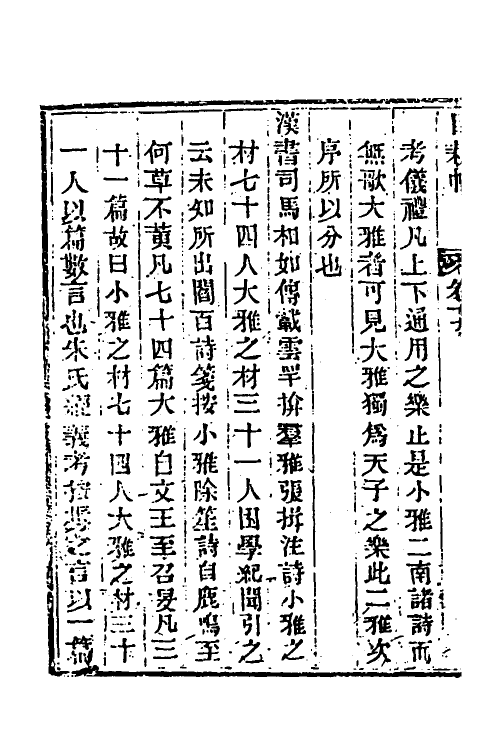 考儀禮凡上下通用之樂止是小雅二南諸詩而
無歌大雅者可見大雅獨爲天子之樂此二雅次
序所以分也
漢書司馬相如傳載雲罕揜羣雅張揖注詩小雅之
材七十四人大雅之材三十一人困學紀聞引之
云未知所出閻百詩箋按小雅除笙詩自鹿鳴至
何草不黄凡七十四篇大雅自文王至召旻凡三
十一篇故曰小雅之材七十四人大雅之材三十
一人以篇數言也朱氏經義考按張之言以一篇